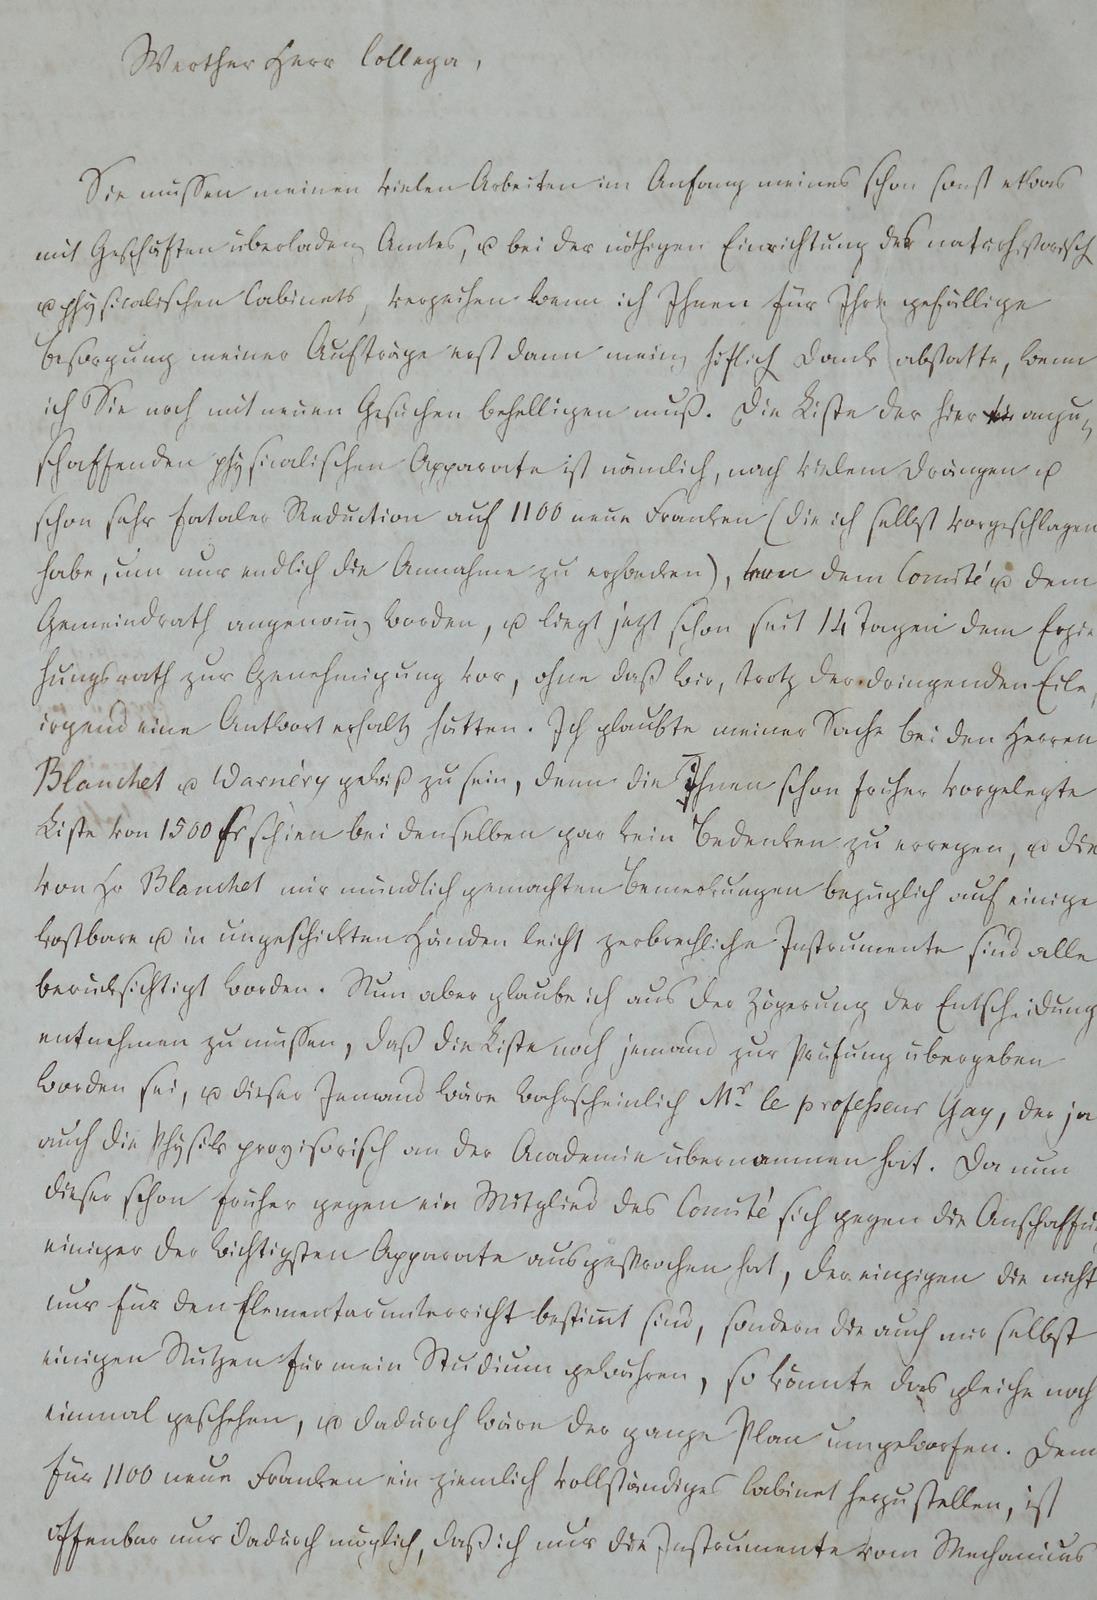 Werther Herr Collega,
Sie müssen meinen vielen Arbeiten im Anfang meines schon sonst etwas
mit Geschäften überladen Amtes, u bei der nöthigen Einrichtung des naturhistorisch
u physicalischen Cabinets, verzeihen wenn ich Ihnen für Ihre gefällige
Besorgung meiner Aufträge erst dann mein höflich Dank abstatte, wenn
ich Sie noch mit neuen Gesuchen behelligen muß. Die Liste der hier anzu
schaffenden physicalischen Apparate ist nämlich, nach vielem Drängen u
schon sehr fataler Reduction auf 1100 neue Franken (die ich selbst vorgeschlagen
habe, um nur endlich die Annahme zu erzwecken), von dem Comité u dem
Gemeindrath angenom worden, u liegt jetzt schon seit 14 Tagen dem Erzie
hungsrath zur Genehmigung vor, ohne daß wir, trotz der dringenden Eile,
irgend eine Antwort erhalt hätten. Ich glaubte meiner Sache bei den Herren
Blanchet u Warnéry gewiß zu sein, denn die Ihnen schon früher vorgelegte
Liste von 1500 fr schien bei denselben gar kein Bedenken zu erregen, u die
von Hr Blanchet mir mündlich gemachten Bemerkungen bezüglich auf einige
kostbare u in ungeschickten Händen leicht zerbrechliche Instrumente sind alle
berücksichtigt worden. Nun aber glaube ich aus der Zögerung der Entscheidung
entnehmen zu müssen, daß die Liste noch jemand zur Prüfung übergeben
worden sei, u dieser Jemand wäre wahrscheinlich Mr. le professeur Gay, der ja
auch die Physik provisorisch an der Academie übernommen hat. Da nun
dieser schon früher gegen ein Mitglied des Comité sich gegen die Anschaffu
einiger der wichtigsten Apparate ausgesprochen hat, der einzigen die nicht
nur für den Elementarunterricht bestimt sind, sondern die auch mir selbst
einigen Nutzen für mein Studium gewähren, so könnte das gleiche noch
einmal geschehen, u dadurch wäre der ganze Plan umgeworfen. Denn
für 1100 neue Franken ein ziemlich vollständiges Cabinet herzustellen, ist
offenbar nur dadurch möglich, daß ich mir die Instrumente vom Mechanicus